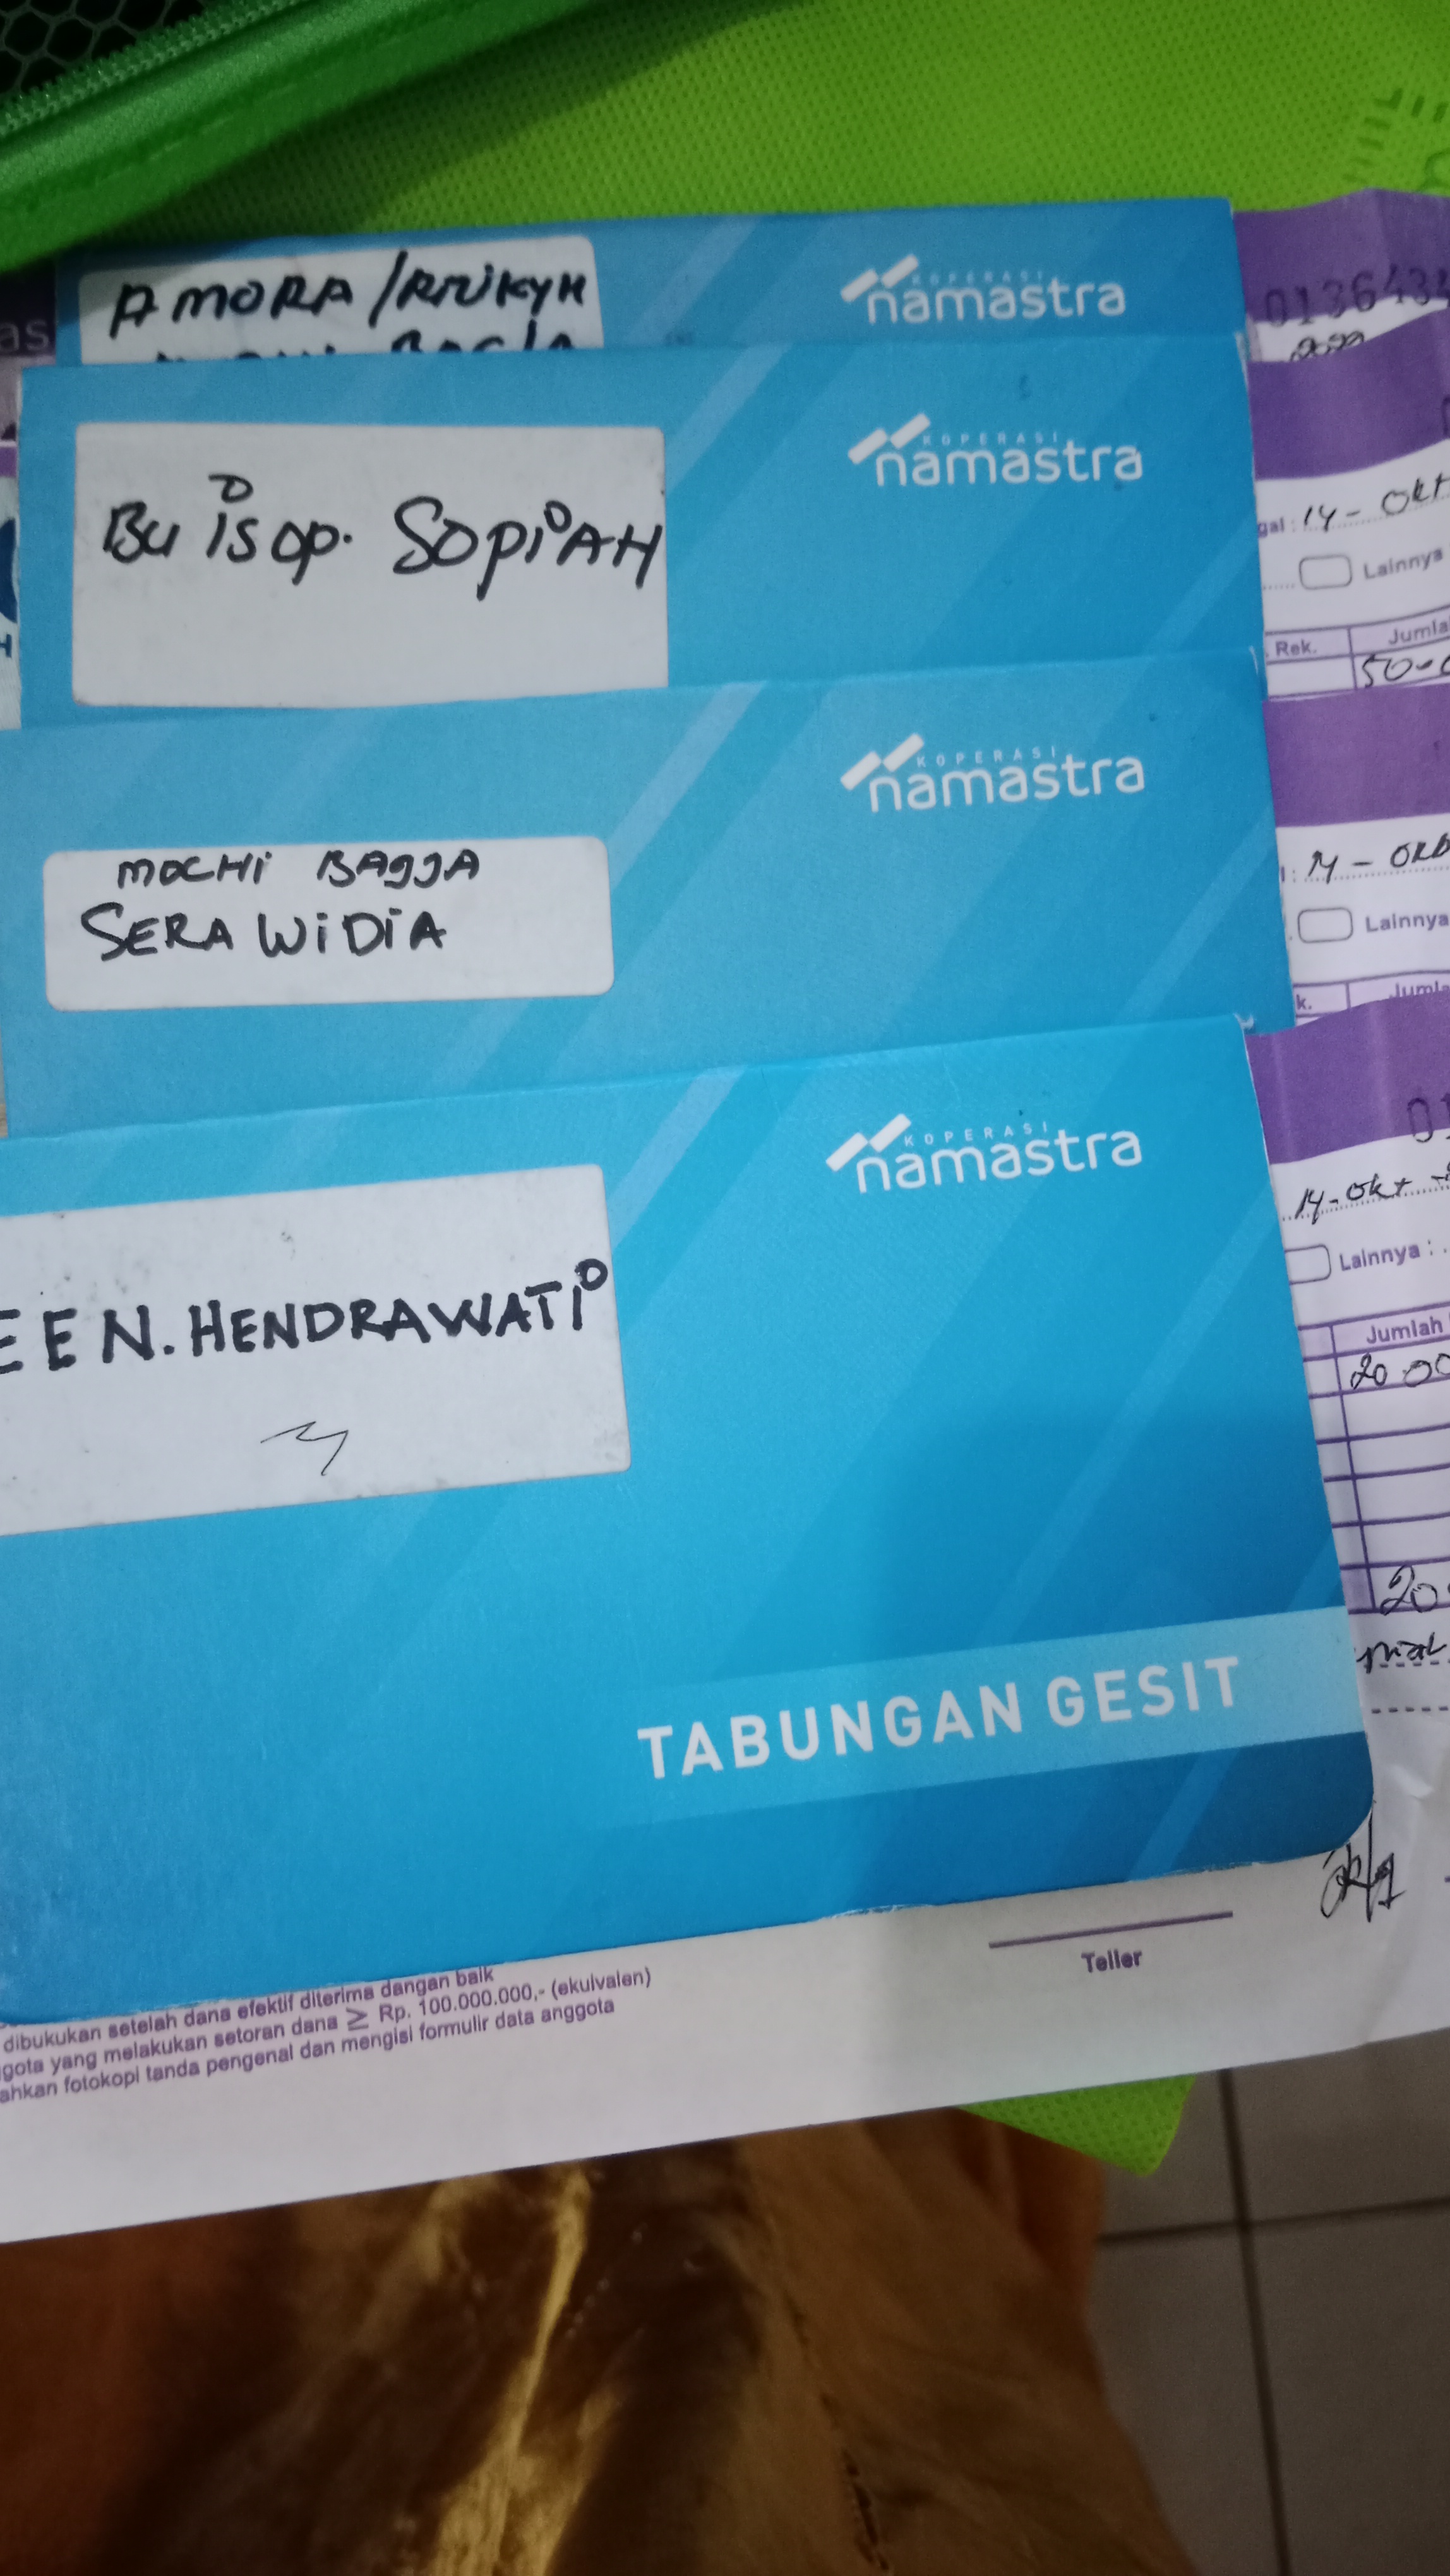 as
AMORA /
KOPERASI
namastra
013643
BU IS OP. SOPIAH
KOPERASI
namastra
gal : 14 - Okt
Lainnya
Rek.
Jumla
H
MOCHI BAGJA
SERA WIDIA
KOPERASI
namastra
Lainnya
k.
Jumla
EEN. HENDRAWATI
KOPERASI
namastra
01
14 - Okt
Lainnya :
Jumlah
20 00
20
TABUNGAN GESIT
Teller
dibukukan setelah dana efektif diterima dangan baik
gota yang melakukan setoran dana ≥ Rp. 100.000.000,- (ekuivalen)
ahkan fotokopi tanda pengenal dan mengisi formulir data anggota